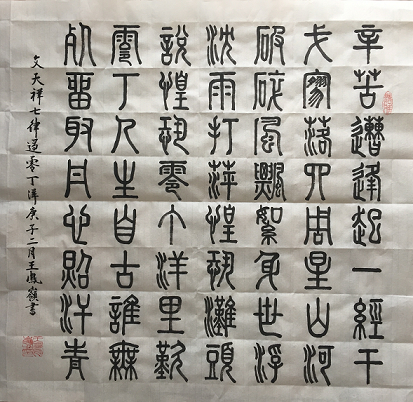 辛苦遭逢起一經干
戈寥落四周星山河
破碎風飄絮身世浮
沈雨打萍惶恐灘頭
說惶恐零丁洋里歎
零丁人生自古誰無
死留取丹心照汗青
文天祥七律過零丁洋庚子二月王嶺書